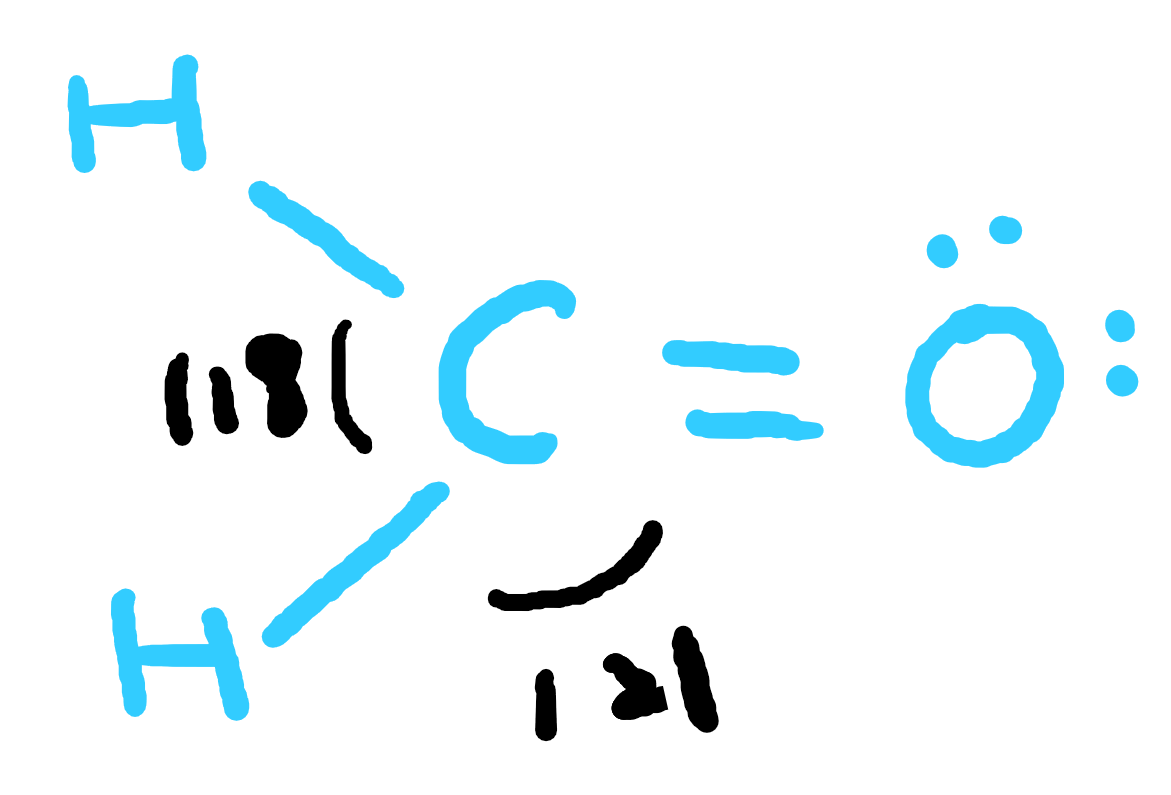 H
118 C = O
H
121